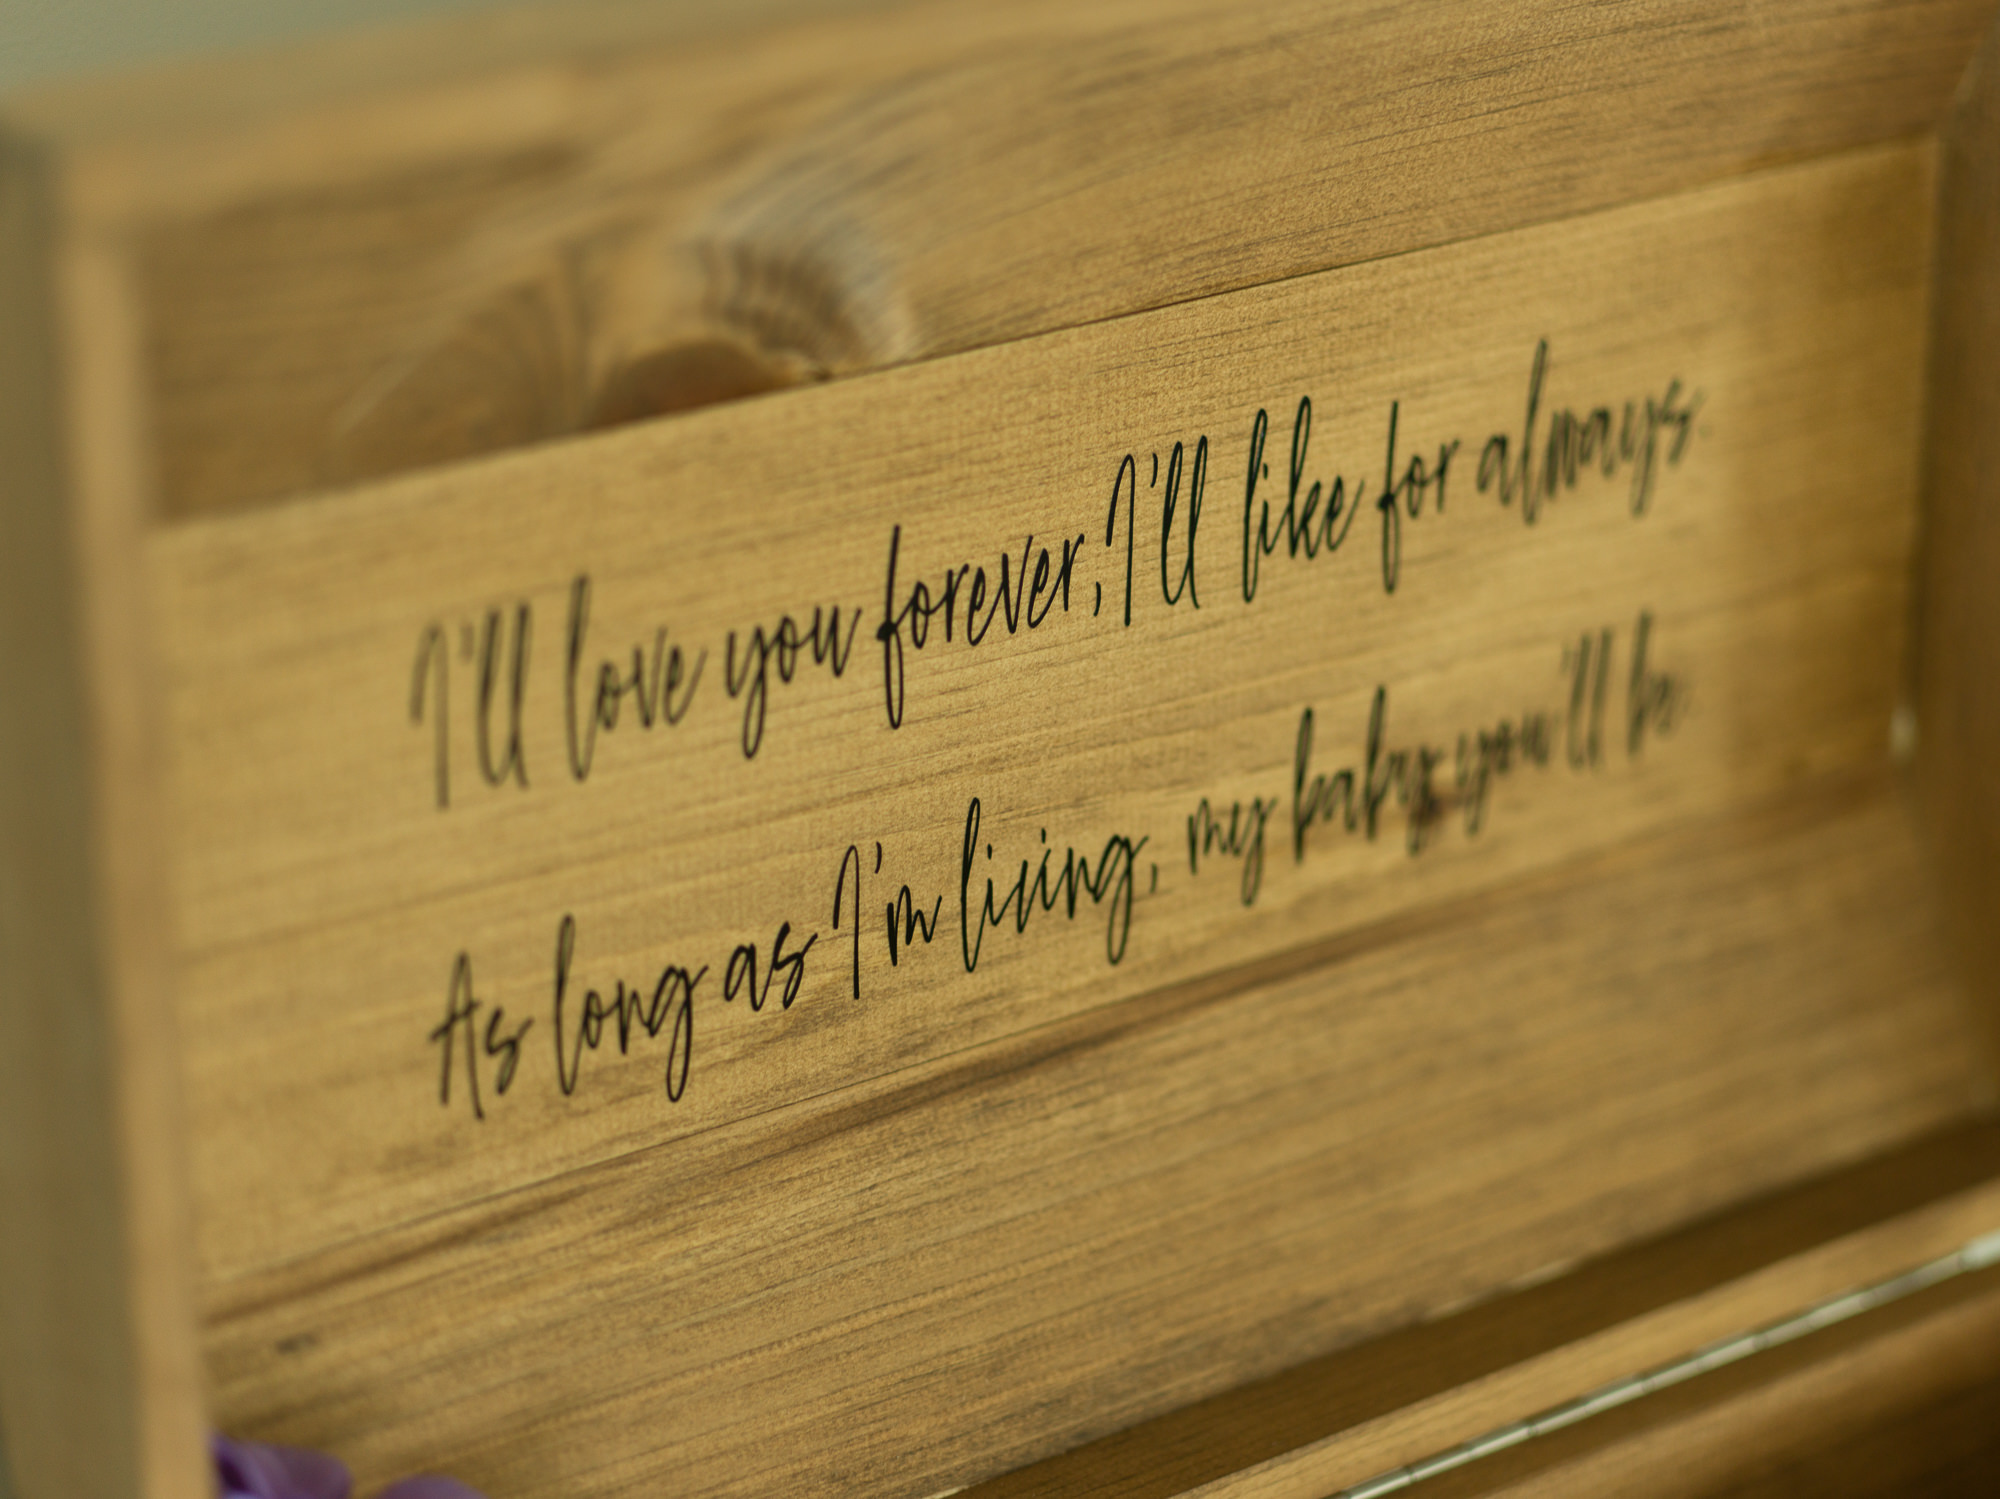 I'll love you forever, I'll like for always.
As long as I'm living, my baby you'll be